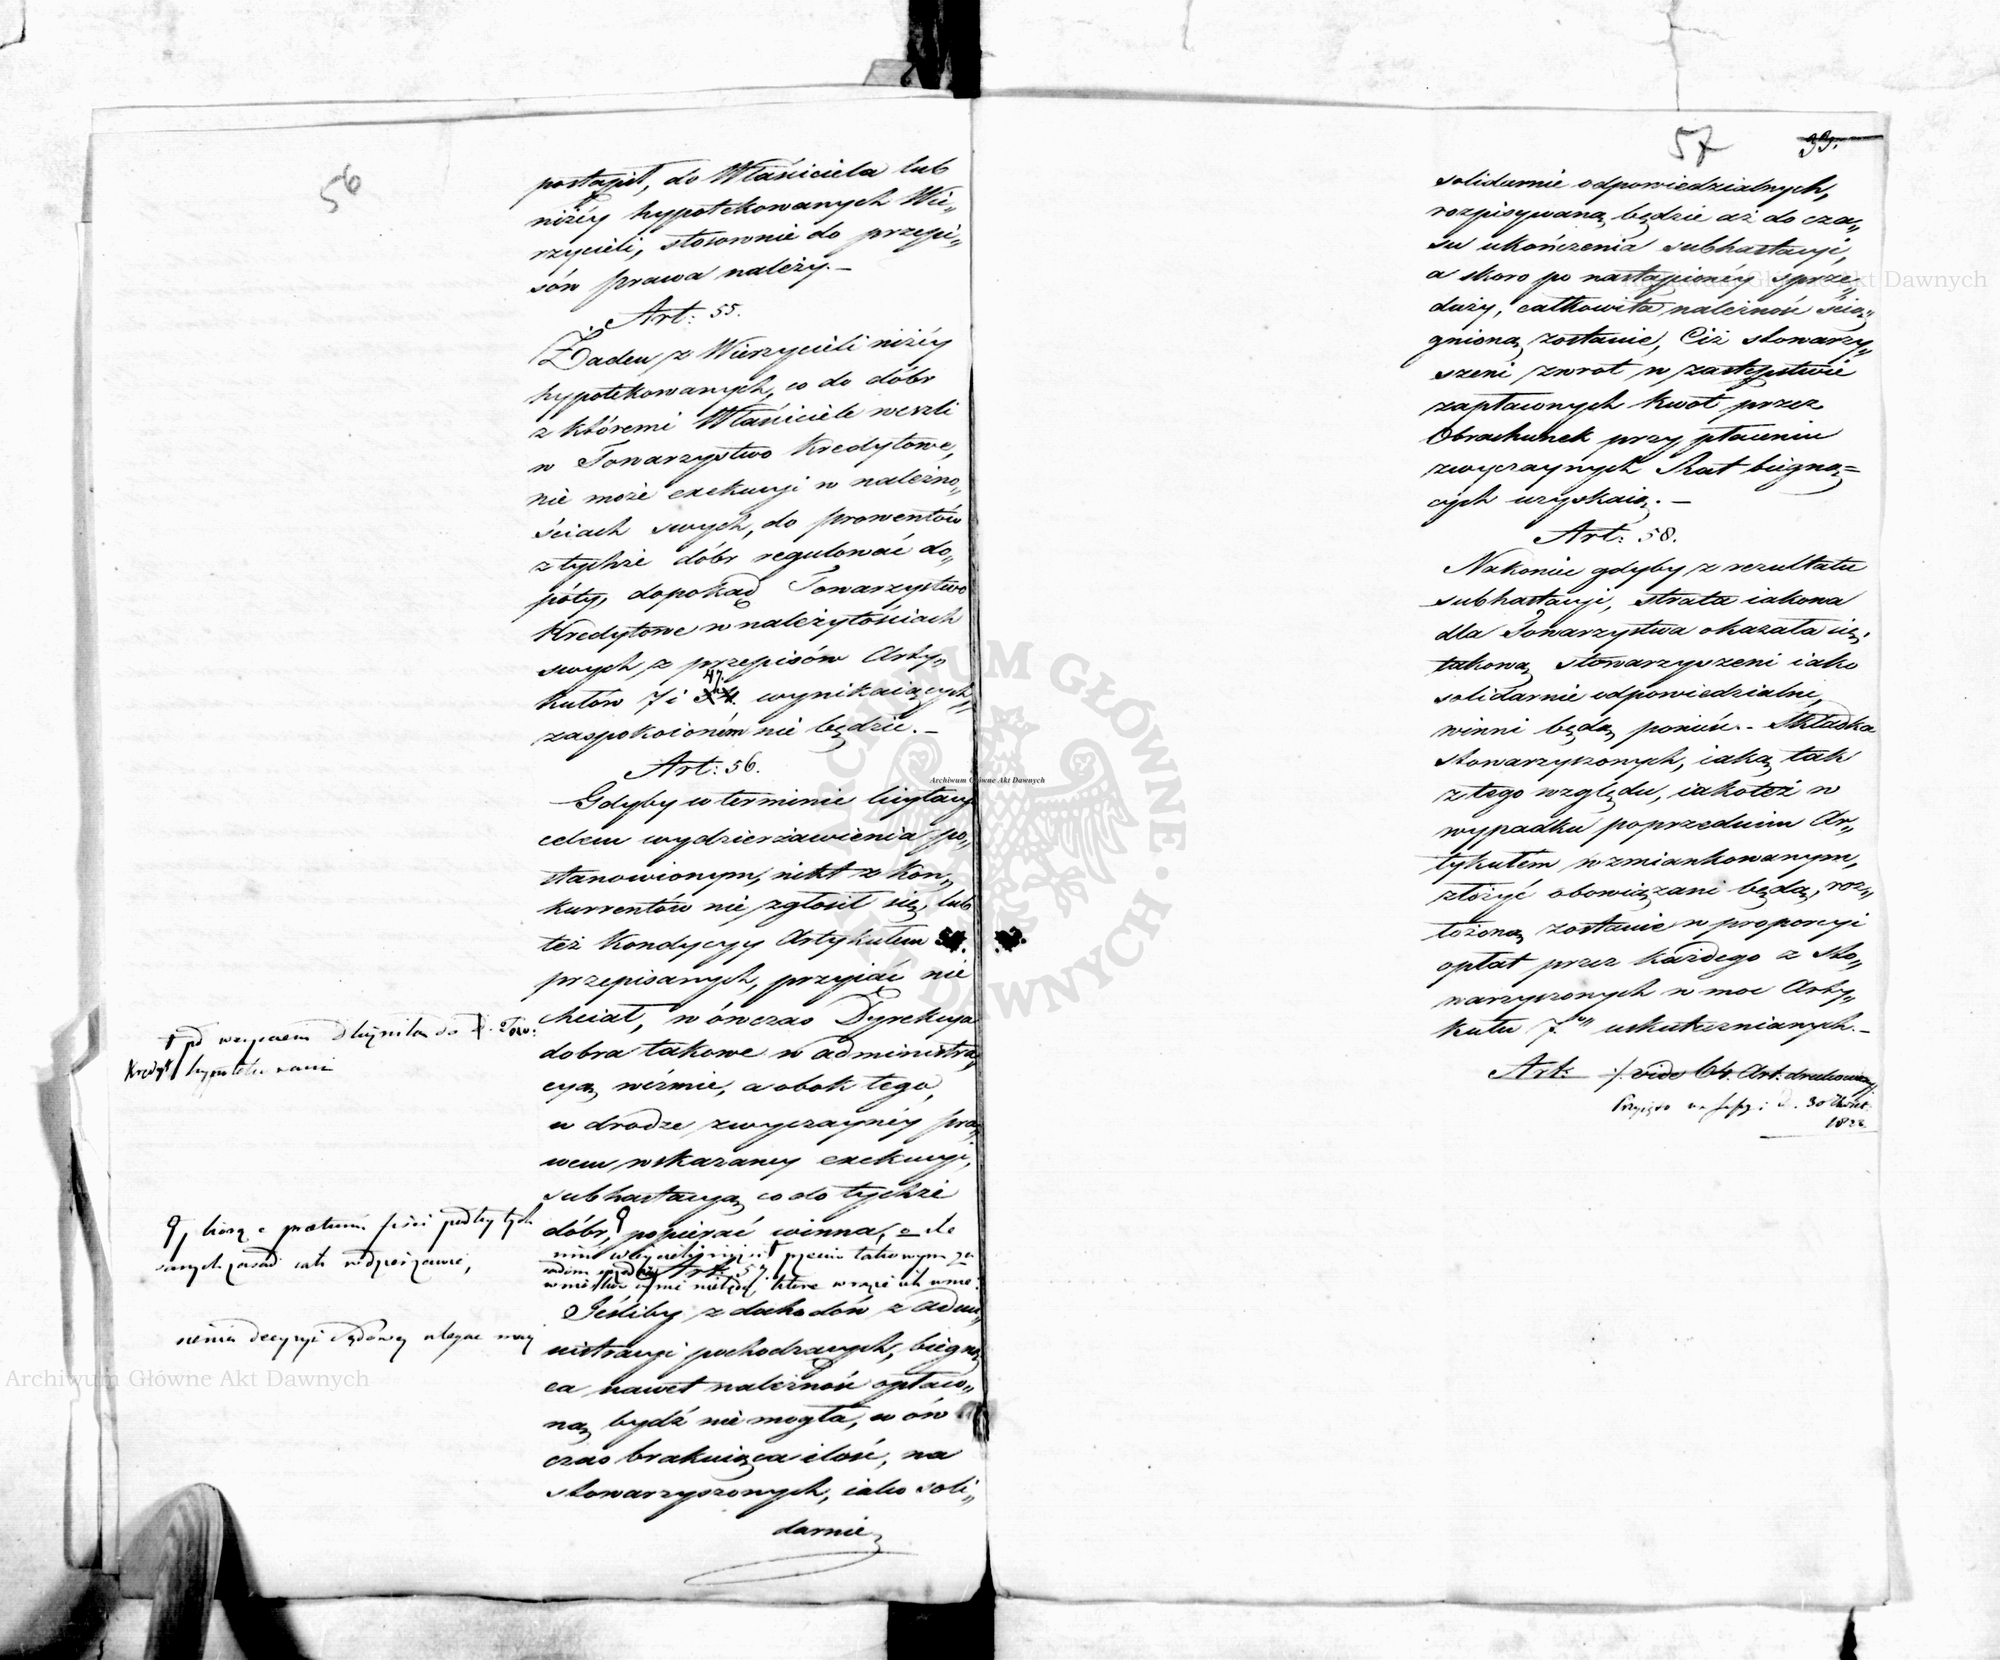 56
postąpił, do Właściciela lub
niżéy hypotekowanych Wie„
rzycieli, stosownie do przepi„
sów prawa należy. —
Art: 55.
Żaden z Wierzycieli niżéy
hypotekowanych, co do dóbr
z któremi Właściciele weszli
w Towarzystwo Kredytowe,
nie może exekucyi w należno„
ściach swych, do prowentów
z tychże dóbr regulować do„
póty, dopokąd Towarzystwo
Kredytowe w należytościach
swych z przepisów Arty„
kułów 7 i 47. wynikaiących„
zaspokoioném nie będzie. —
Art: 56.
Gdyby w terminie licytacyi
celem wydzierżawienia po„
stanowionym, nikt z kon„
kurrentów nie zgłosił się, lub
też kondycyy Artykułem
przepisanych, przyiąć nie
chciał, w ówczas Dyrekcya
dobra takowe w administra„
cyą weźmie, a obok tego,
w drodze zwyczaynéy pra„
wem wskazaney exekucyi,
subhastacyą co do tychże
dóbr, popierać winna, o ile
Art: 57.
Jeśliby z dochodów z admi„
nistracyi pochodzących, biegną
ca nawet należność opłaco„
ną bydź nie mogła, w ów
czas brakuiąca ilość, na
stowarzyszonych, iako soli„
darnie
57 33.
solidarnie odpowiedzialnych,
rozpisywaną będzie aż do cza„
su ukończenia subhastacyi,
a skoro po nastąpionéy sprze„
daży, całkowita należność ścią„
gnioną zostanie, Ciż stowarzy„
szeni zwrot w zastępstwie
zapłaconych kwot przez
Obrachunek przy płaceniu
zwyczaynych Rat biegną=
cych uzyskaią. —
Art: 58.
Nakoniec gdyby z rezultatu
subhastacyi, strata iakowa
dla Towarzystwa okazała się,
takową stowarzyszeni iako
solidarnie odpowiedzialni,
winni będą ponieść. - Składka
stowarzyszonych, iaką tak
z tego względu, iakoteż w
wypadku poprzednim Ar„
tykułem wzmiankowanym,
złożyć obowiązani będą, roz„
łożoną zostanie w proporcyi
opłat przez każdego z Sto„
warzyszonych w moc Arty„
kułu 7. uskutecznianych. —
Art: /. vide 64. Art. drukowany
Przyięto na Sessyi d. 30
Archiwum Główne Akt Dawnych
Archiwum Główne Akt Dawnych
Archiwum Główne Akt Dawnych
ARCHIWUM GŁÓWNE · AKT DAWNYCH